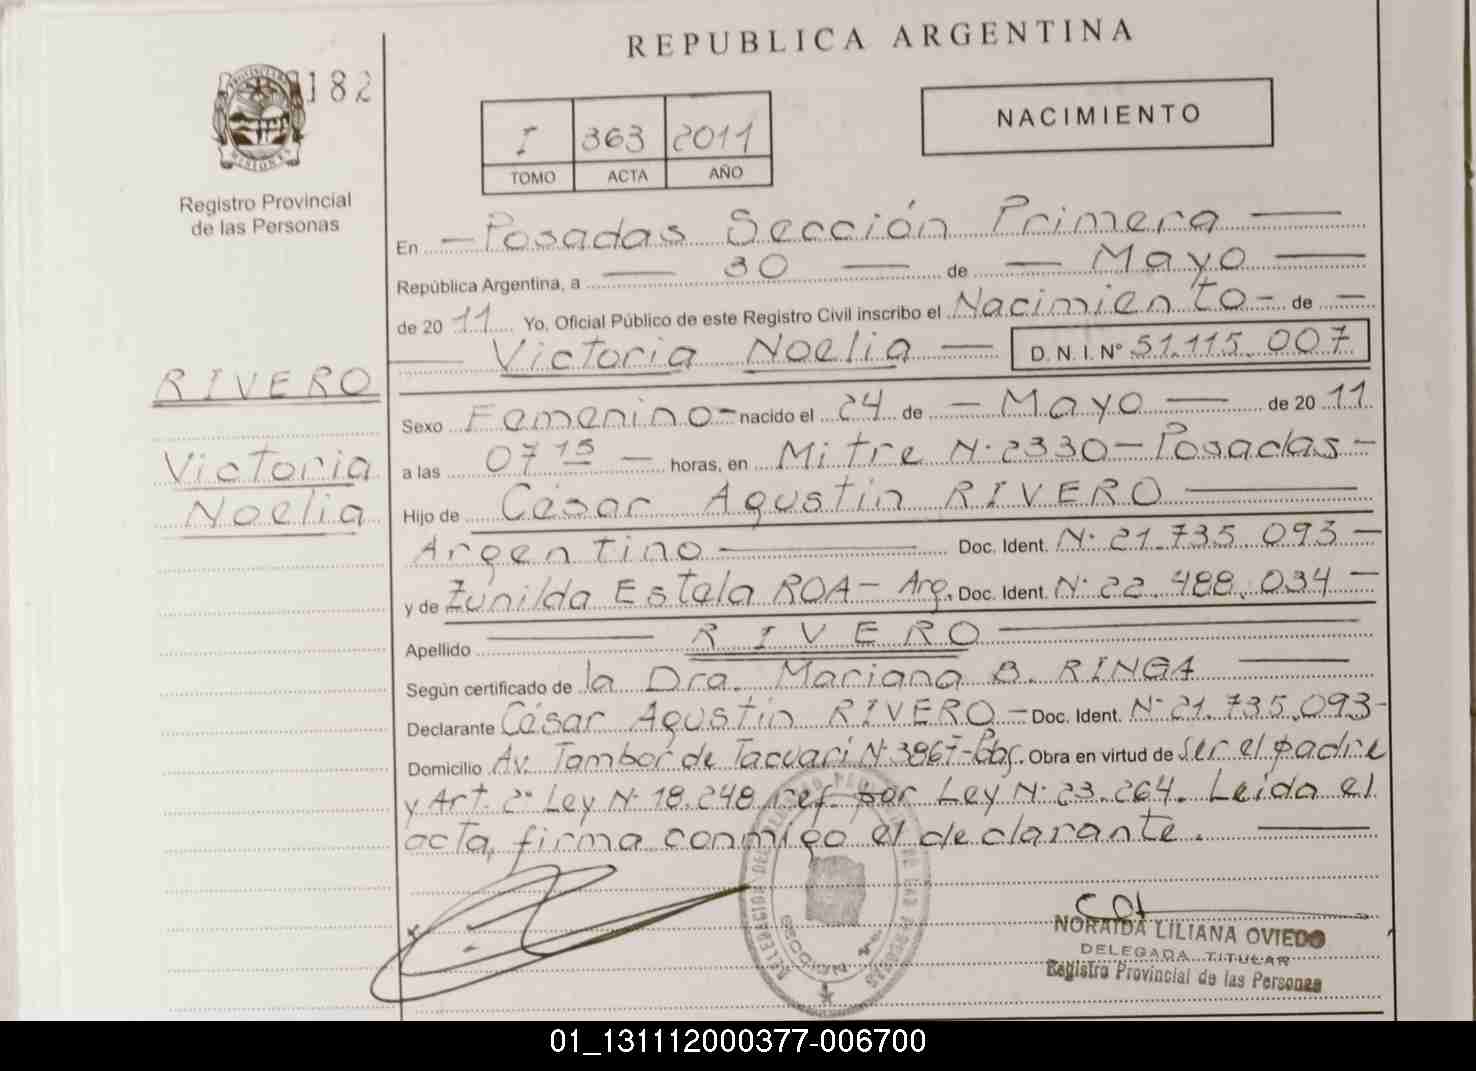 REPUBLICA ARGENTINA
182
PROVINCIA
MISIONES
Registro Provincial
de las Personas
I 363 2011
TOMO ACTA AÑO
NACIMIENTO
En - Posadas Sección Primera -
República Argentina, a - 30 - de - Mayo -
de 2011 Yo, Oficial Público de este Registro Civil inscribo el Nacimiento - de -
- Victoria Noelia - D. N. I. Nº 51.115.007
RIVERO
Victoria
Noelia
Sexo Femenino - nacido el 24 de - Mayo - de 2011
a las 07 15 - horas, en Mitre Nº 2330 - Posadas -
Hijo de César Agustín RIVERO -
Argentino - Doc. Ident. Nº 21.735.093 -
y de Zunilda Estela ROA - Arg. Doc. Ident. Nº 22.488.034 -
Apellido - RIVERO -
Según certificado de la Dra. Mariana B. RINGA -
Declarante César Agustín RIVERO - Doc. Ident. Nº 21.735.093 -
Domicilio Av. Tambor de Tacuarí Nº 3967 - Pdas. Obra en virtud de ser el padre
y Art. 2º Ley Nº 18.248 ref. por Ley Nº 23.264. Leída el
acta, firma conmigo el declarante. -
SECCION 1ª
NORAIDA LILIANA OVIEDO
DELEGADA TITULAR
Registro Provincial de las Personas
01_131112000377-006700